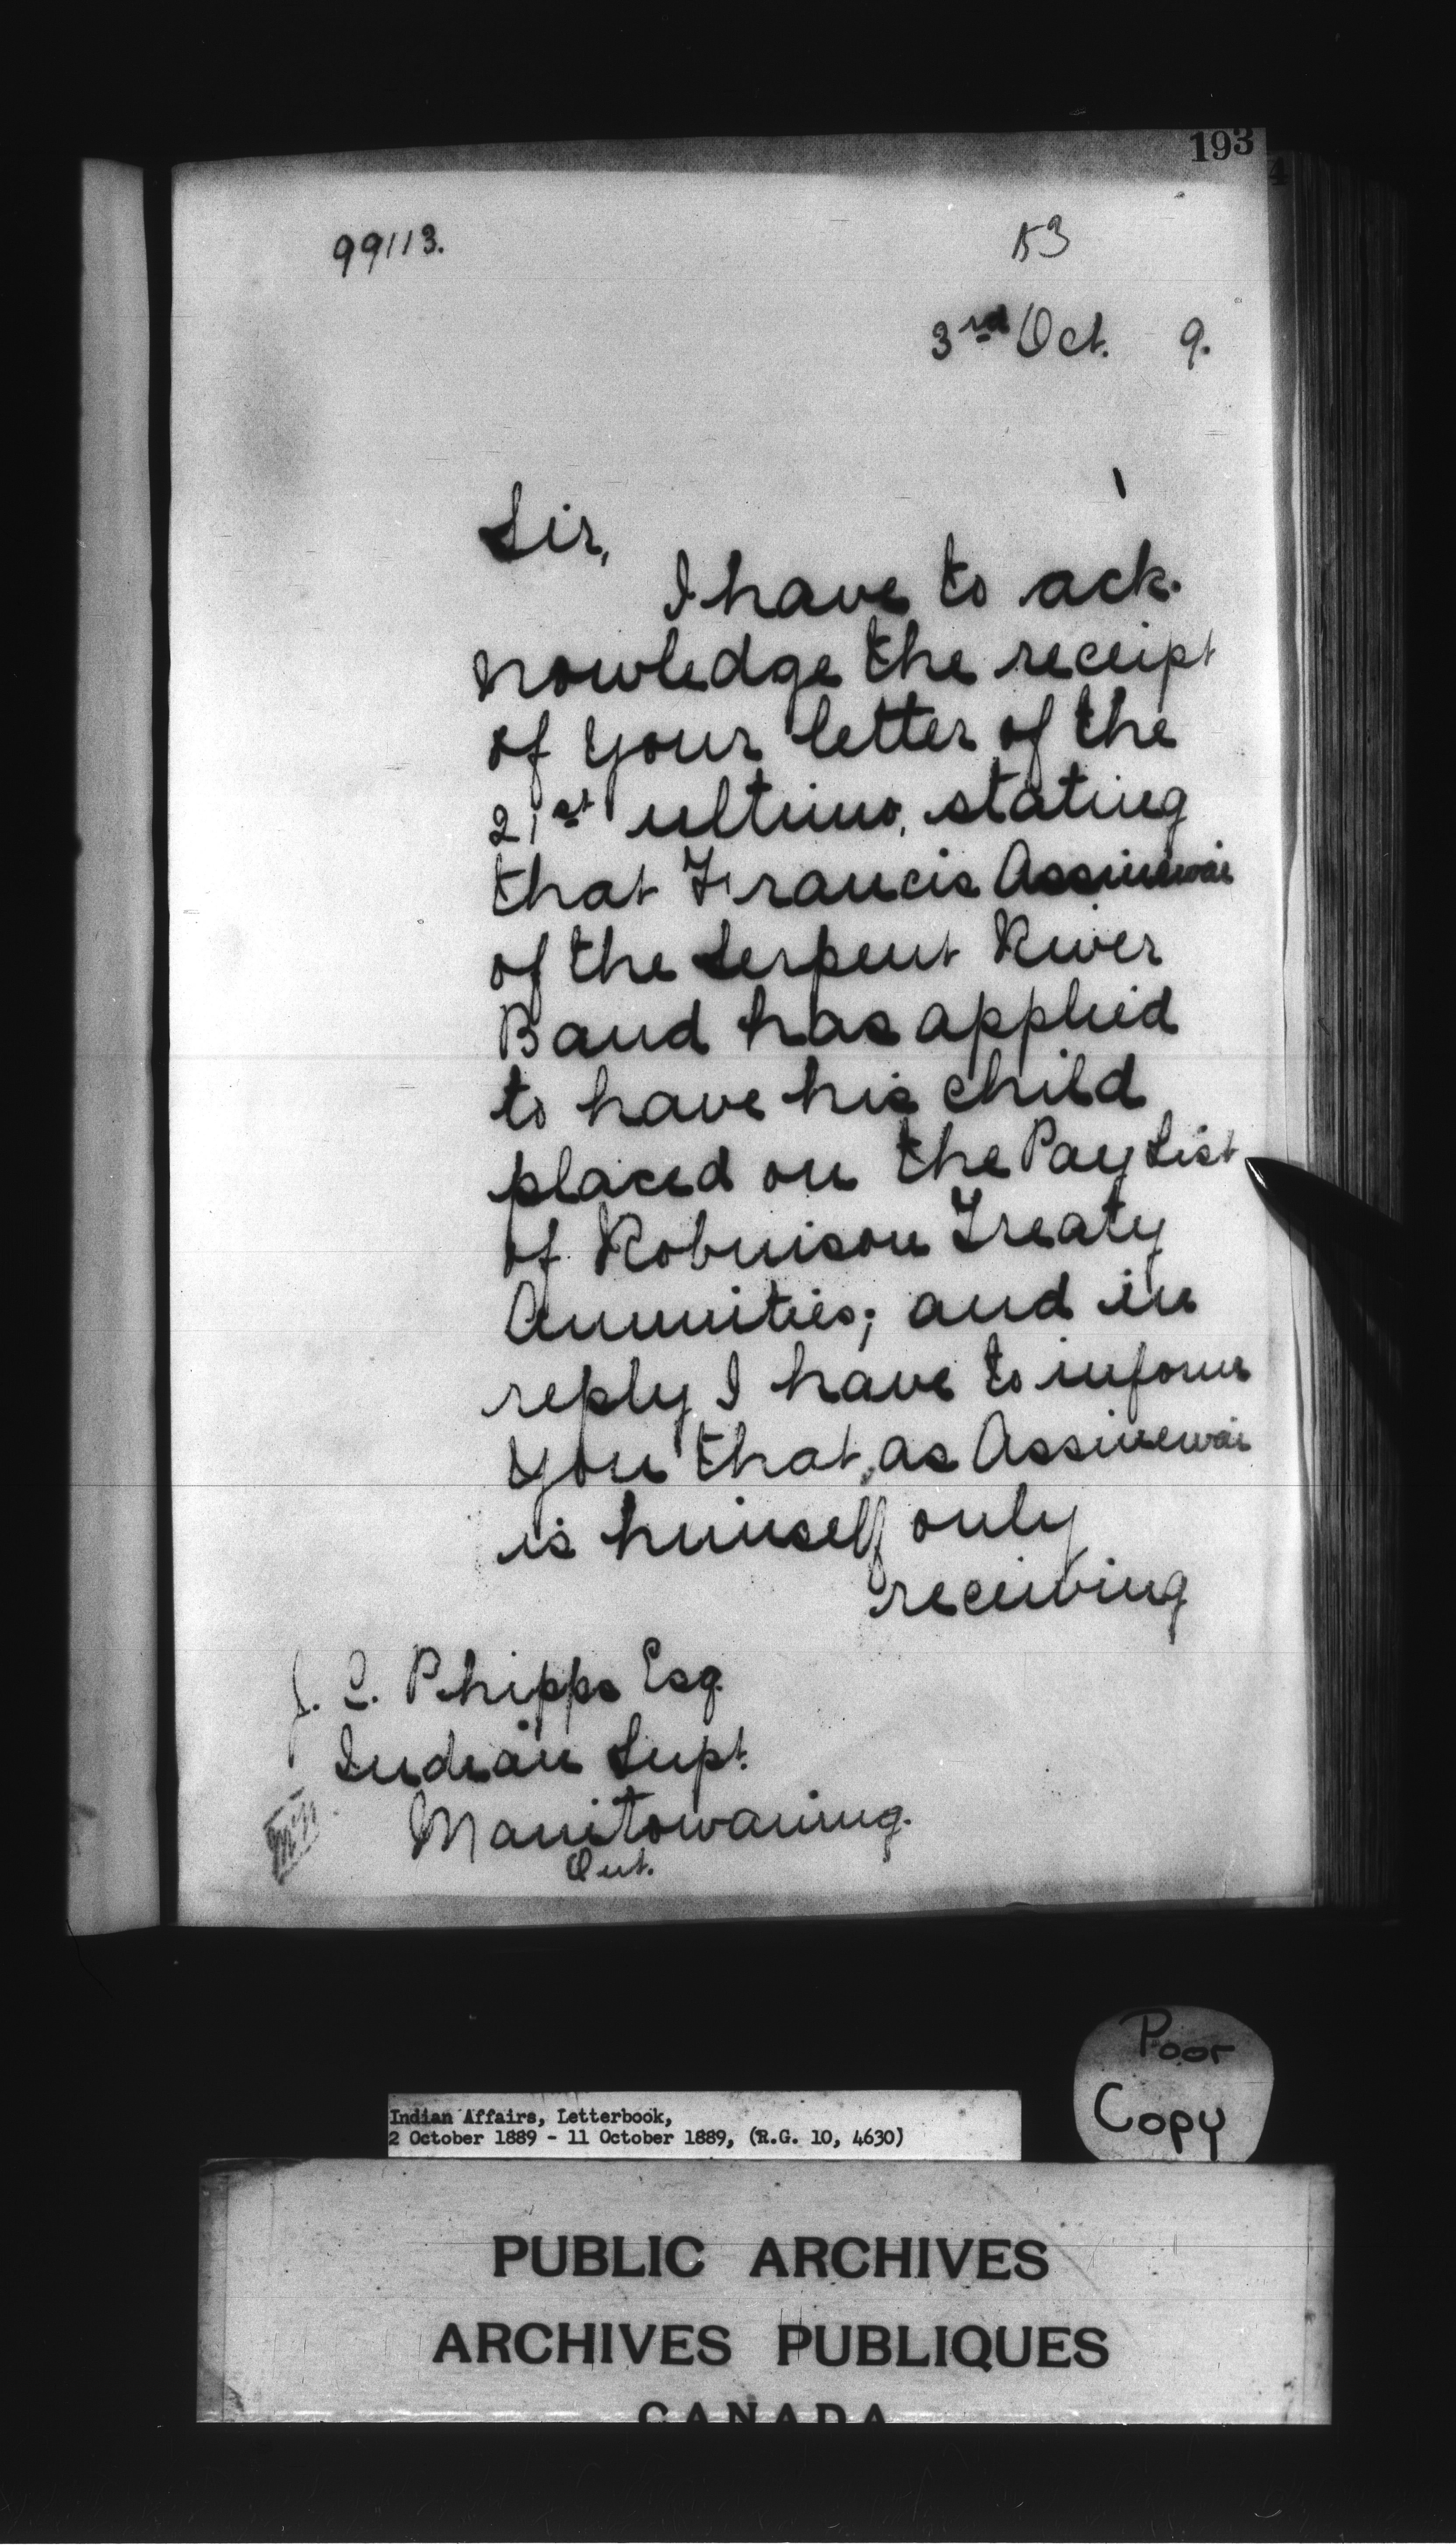 193
4
99113.
153
3rd Oct. 9.
Sir,
I have to ack-
nowledge the receipt
of your letter of the
21st ultimo, stating
that Francis Assinewai
of the Serpent River
Band has applied
to have his child
placed on the Pay List
of Robinson Treaty
Annuities; and in
reply I have to inform
you that, as Assinewai
is himself only
receiving
J. C. Phipps Esq
Indian Supt.
Manitowaning.
Ont.
Poor
Copy
Indian Affairs, Letterbook,
2 October 1889 - 11 October 1889, (R.G. 10, 4630)
PUBLIC ARCHIVES
ARCHIVES PUBLIQUES
CANADA